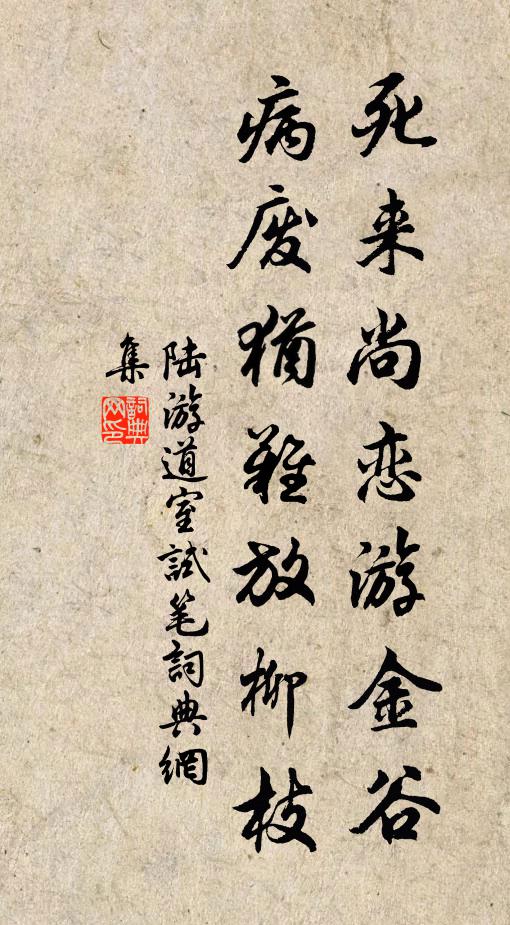 死来尚恋游金谷
病废犹难放柳枝
陆游道室試笔詞典網
集
詞典
网印